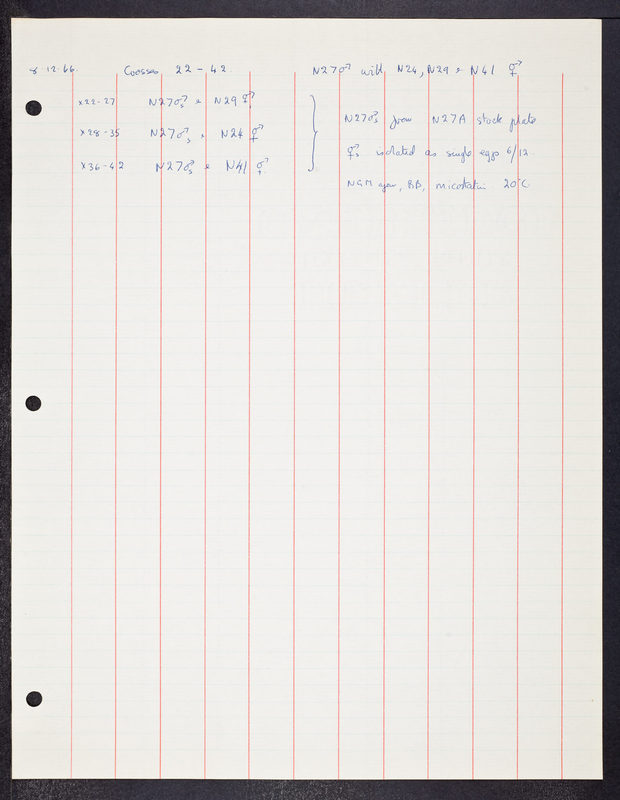 8.12.66. Crosses 22 - 42 N27♂ with N24, N29 & N41 ⚥
x22-27 N27♂s × N29 ⚥
x28-35 N27♂s × N24 ⚥
x36-42 N27♂s × N41 ⚥
N27♂s from N27A stock plate
⚥s isolated as single eggs 6/12.
NGM agar, BB, 20°C